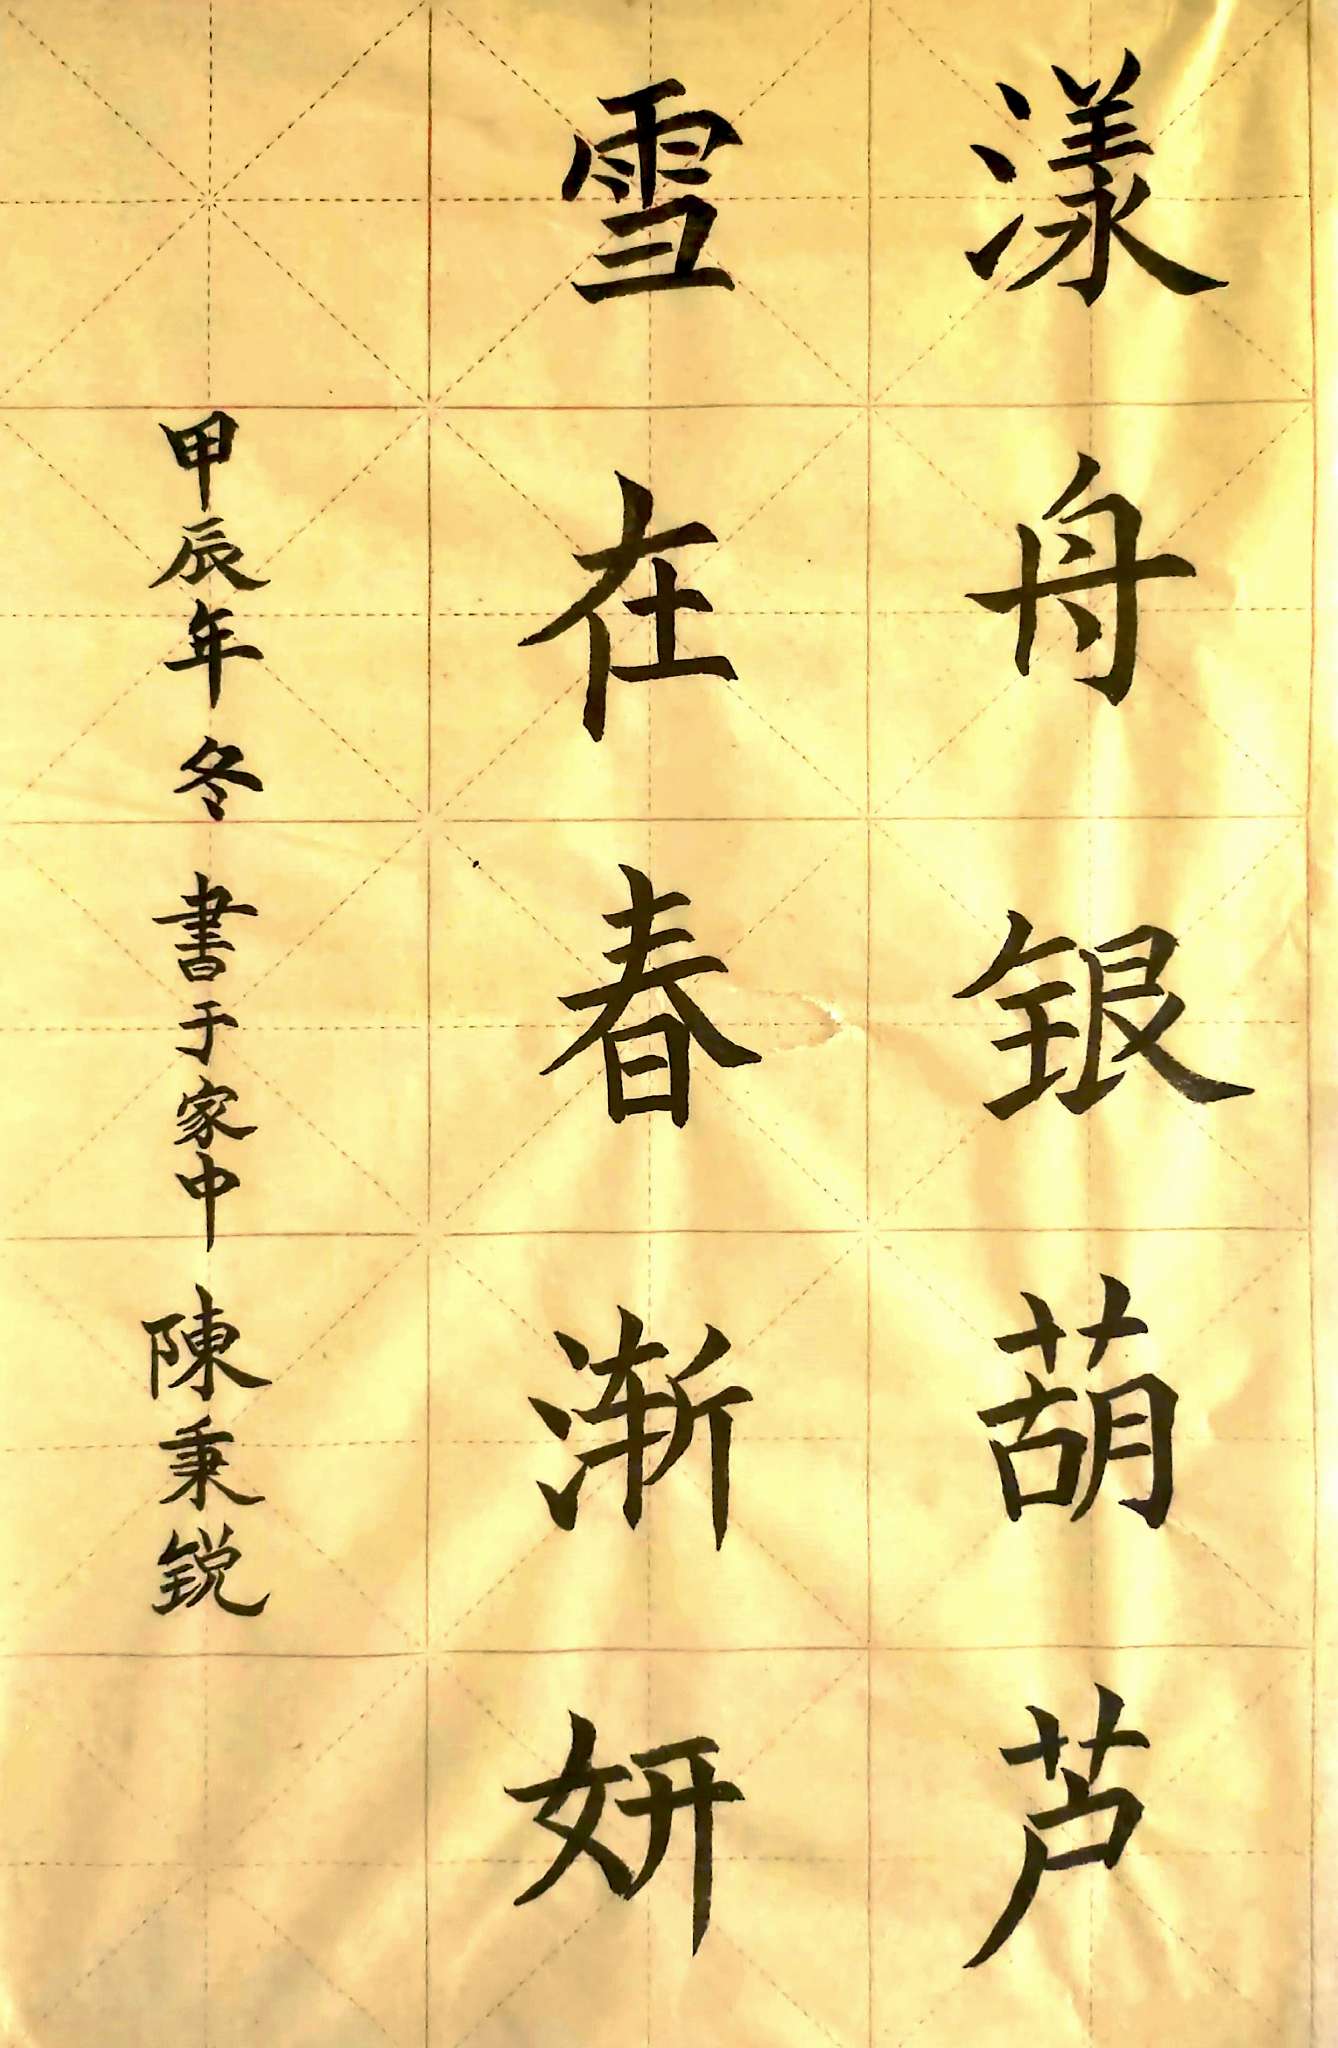 漾舟银葫芦
雪在春渐妍
甲辰年冬 書于家中 陳秉锐